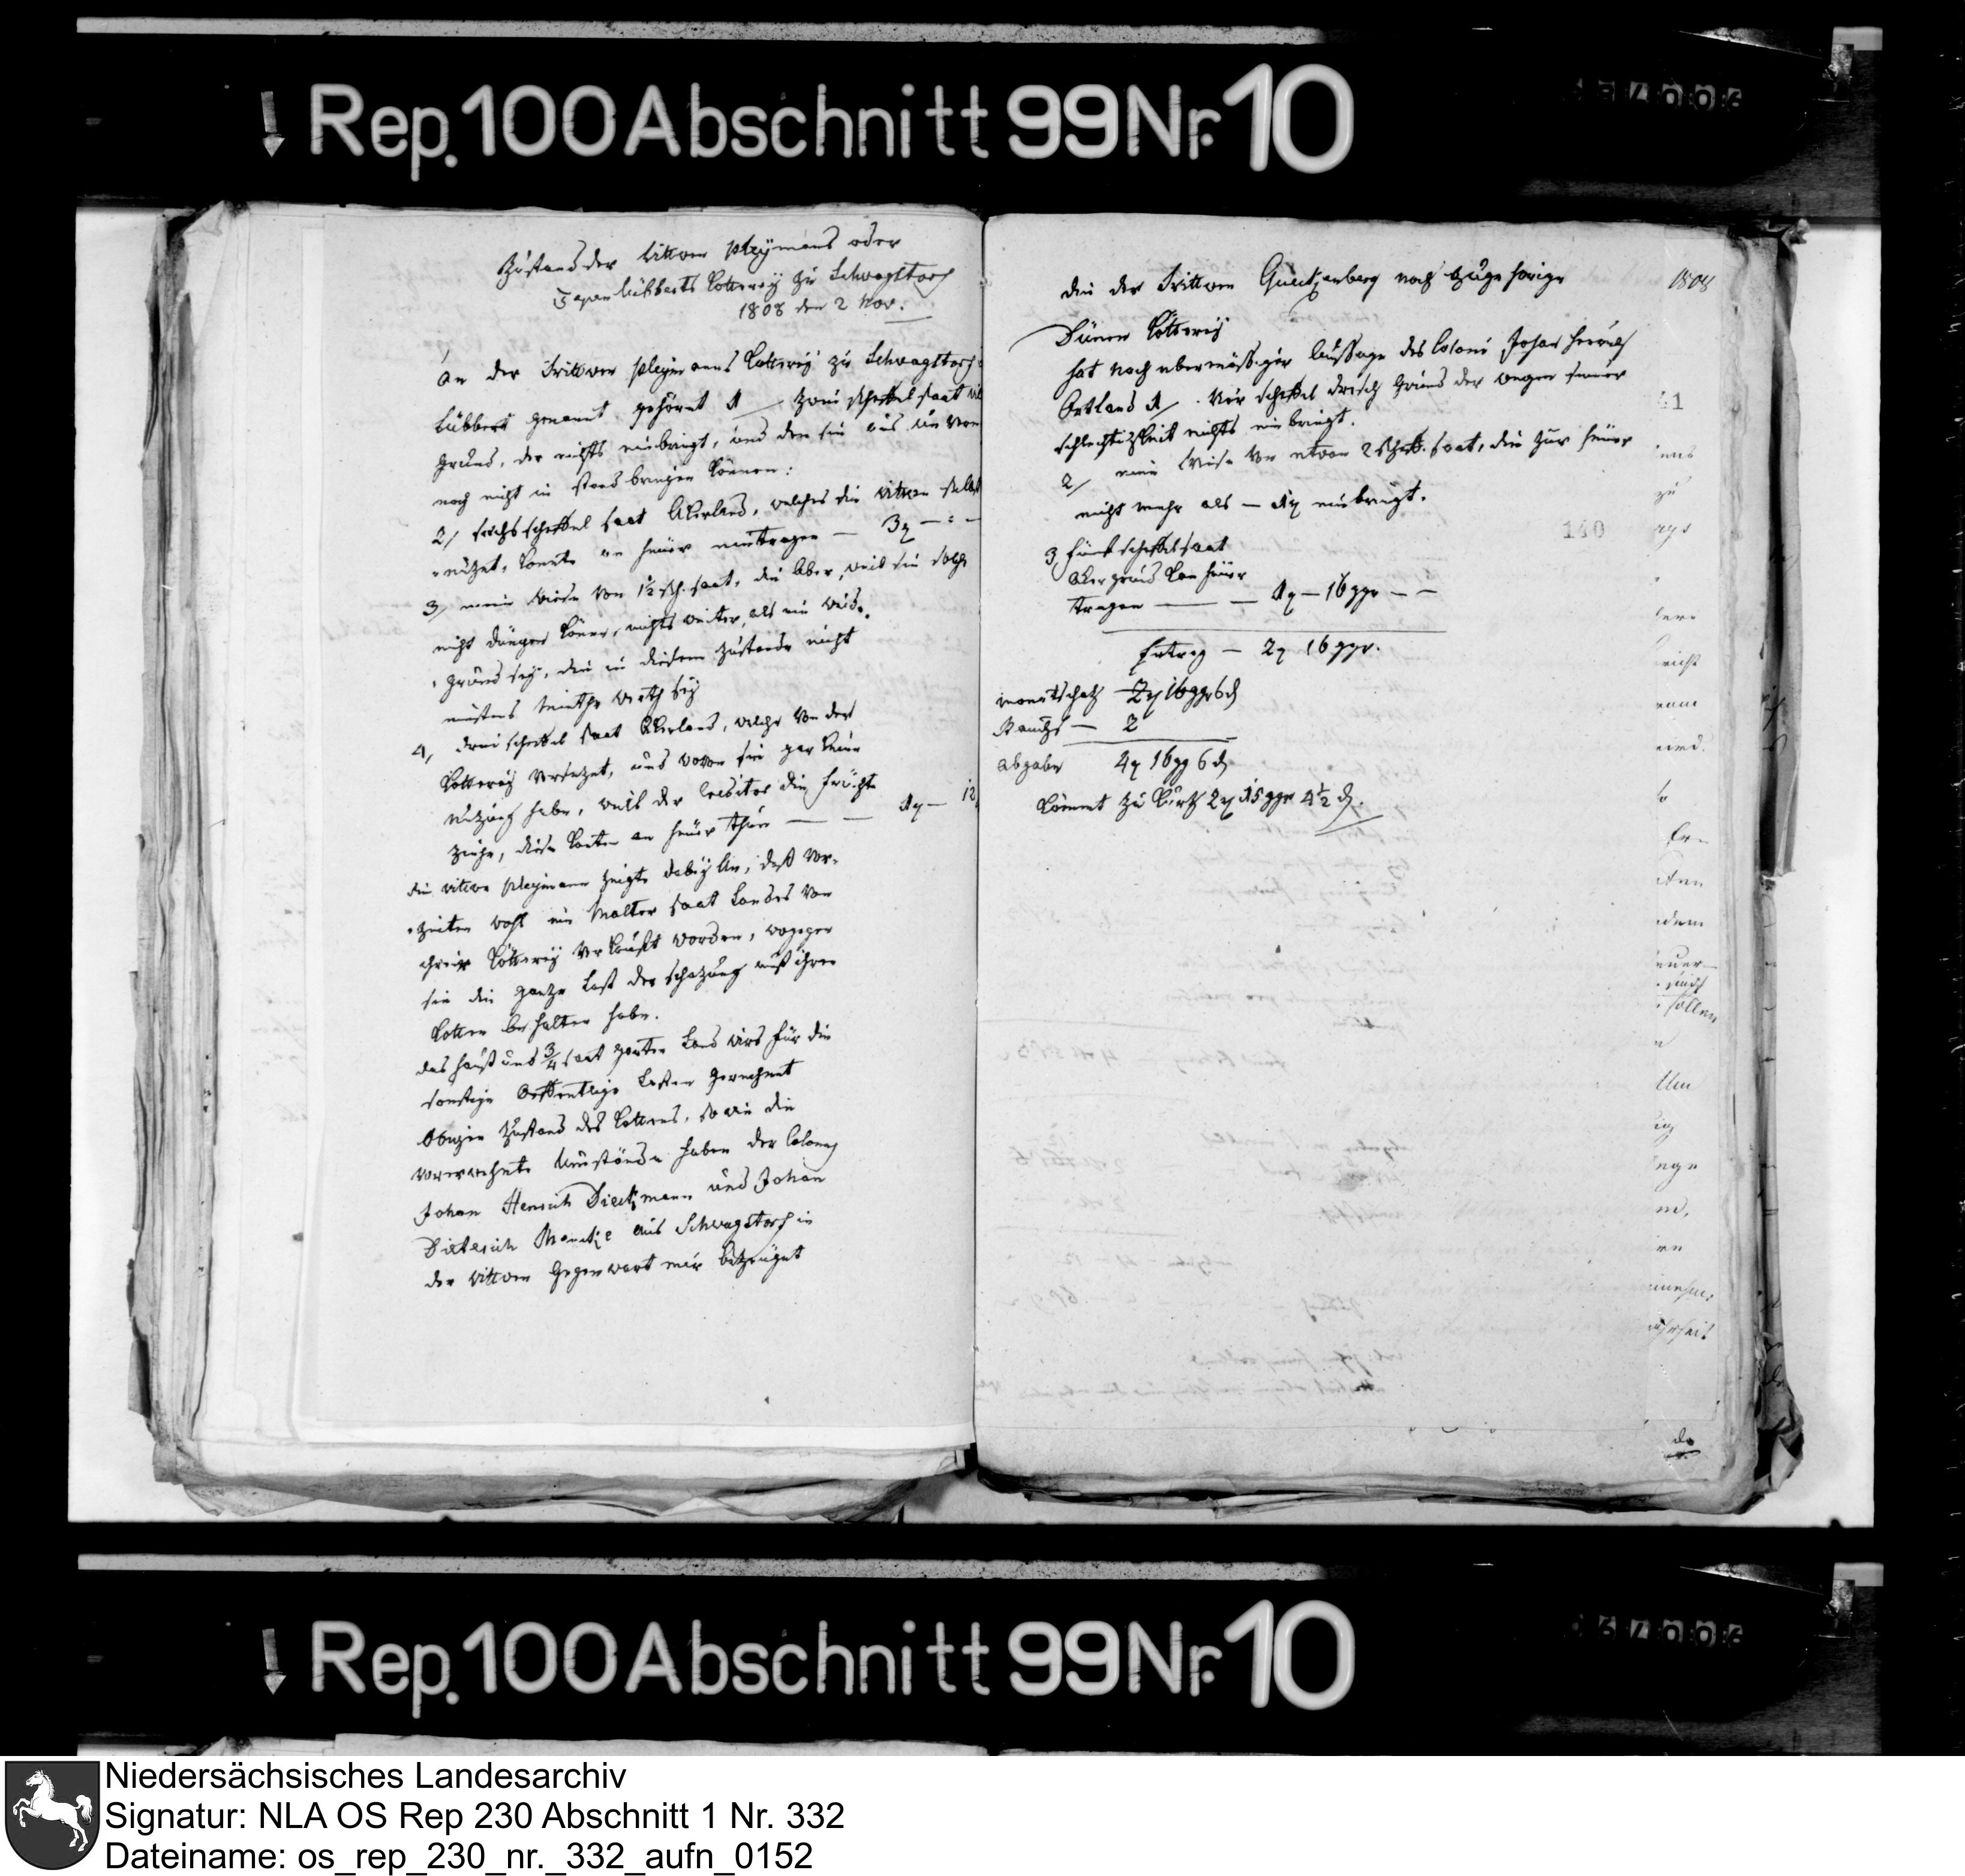 ↓ Rep. 100 Abschnitt 99 Nr. 10
Zustand der Wittwen Pleÿmans oder
Lübberts Kottereÿ zu Schwagstorf
1808 den 2 Nov.
An der Wittwen Pleymanns Kotterey zu Schwagstorf
Lübbers genannt gehöret 1 zwei scheffel saat
Grund, der nichts einbringt, und den sie aus
noch nicht in stand bringen können:
2/ sechs scheffel saat Ackerland, welches die Witwe selbst
nützet, konnte an heuer eintragen — 3
3/ eine Wiese von 1½ sch. saat, die aber, weil sie solche
nicht düngen könne, nichts weiter, als ein Weide
grund sey, die in diesem zustande nicht
miethe werth seÿ
4, drei scheffel saat Ackerland, welche von der
Kottereÿ versetzet, und wovon sie gar keine
nutzung habe, weil der Creditor die früchte
ziehe, diese konten an heuer thun — — 1 — 12
die witwe Pleymann zeigte dabeÿ an, daß vor
zeiten wohl ein Malter saat Landes von
ihrer Kötterey verkauft worden, wogegen
sie die gantze Last der schatzung auf ihren
Kotten behalten habe.
das hauß und ¾ saat garten Land wird für die
sonstige oeffentliche Lasten gerechnet
Obigen zustand des Kottens, so wie die
vorerwehnte Umstände haben der Colonus
Johan Henrich Dieckmann und Johan
Dieterich aus Schwagstorf in
der wittwen Gegenwart mir bezeuget
die der Wittwen noch zugehörige 1808
Dünen Kötterey
hat nach übermässiger Aussage des Coloni Johan
Ortland 1/. vier scheffel drisch Grund der wegen seiner
schlechtigkeit nichts einbringt.
2/ eine Wiese von etwan 2 scheff. saat, die zur heuer
nicht mehr als — 1 einbringt.
3, fünf scheffel saat
Ackergrund kan heuer
tragen — — 1 — 16 ggr — —
Ertrag — 2 16 ggr.
monatschatz 2 16 ggr 6 d
Rauchs — 2
abgabe 4 16 gg 6 d
kömmt zu kurtz 2 15 ggr 4½ d.
41
140
↓ Rep. 100 Abschnitt 99 Nr. 10
Niedersächsisches Landesarchiv
Signatur: NLA OS Rep 230 Abschnitt 1 Nr. 332
Dateiname: os_rep_230_nr._332_aufn_0152